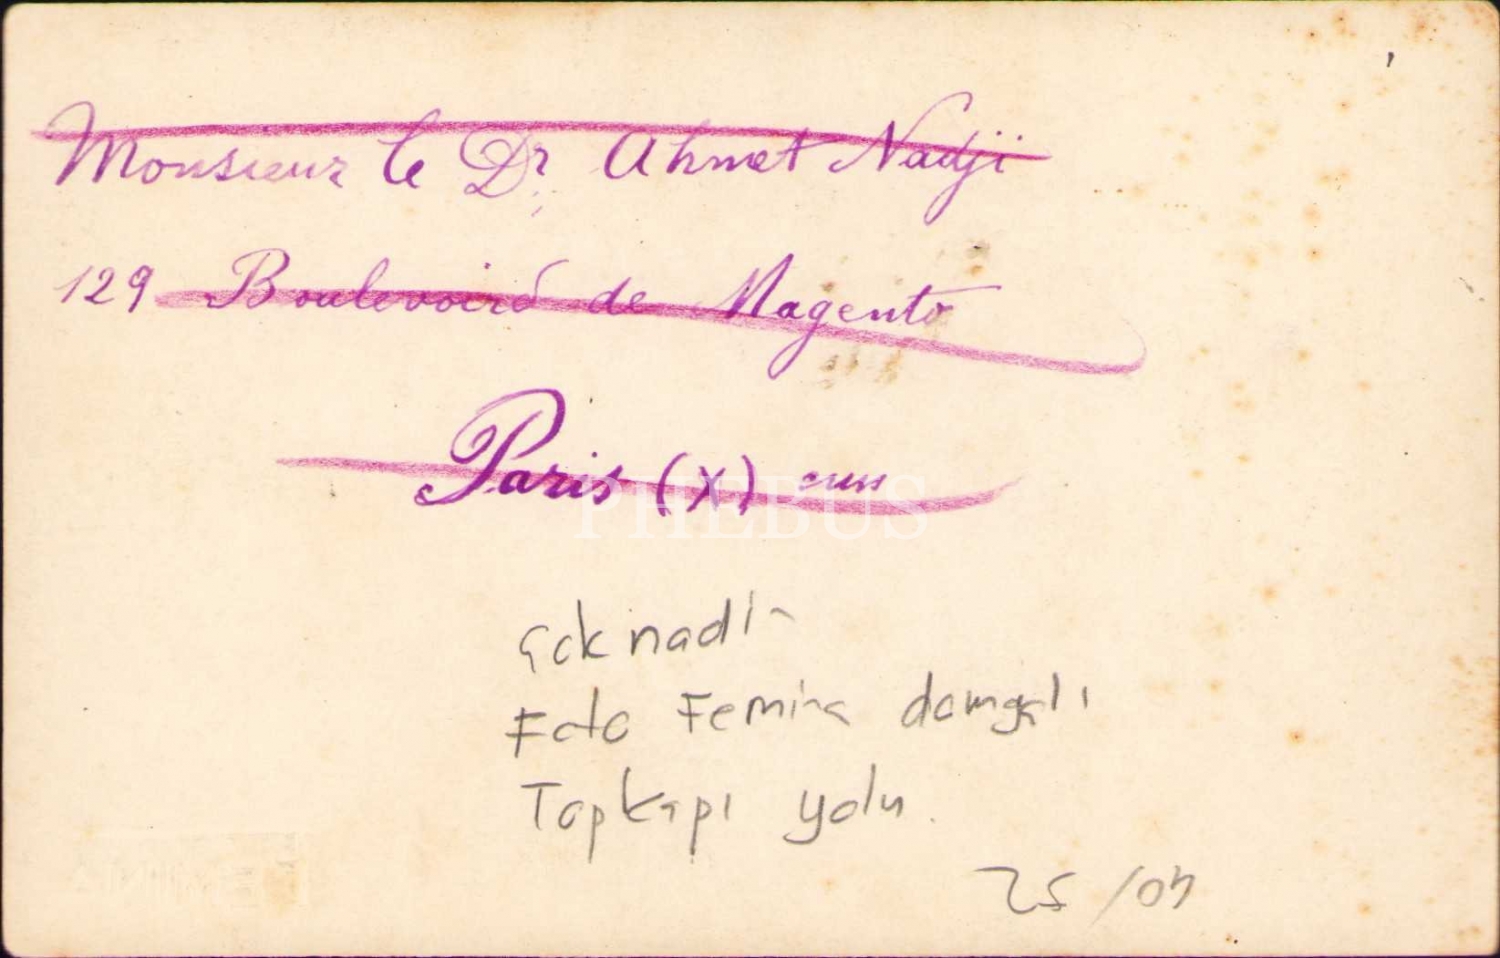 Monsieur le Dr Ahmet Nadji
129 Boulevoird de Magento
Paris (X)
PHEBUS
çok nadir
Foto Femina damgalı
Topkapı yolu.
25 /04